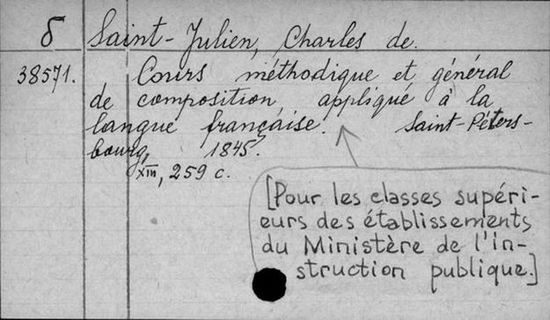 δ Saint-Julien, Charles de.
38571. Cours méthodique et général
de composition, appliqué à la
langue française. Saint-Péters-
bourg, 1845.
XIII, 259 c.
[Pour les classes supéri-
eurs des établissements
du Ministère de l'in-
struction publique.]